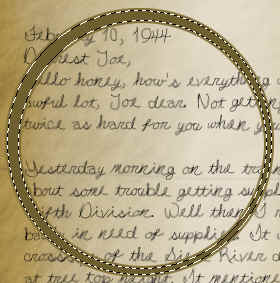 February 10, 1944
Dearest Joe,
Hello honey, how's everything
awful lot, Joe dear. Not getting
twice as hard for you when you
Yesterday morning on the train
about some trouble getting suppl
Fifth Division. Well then I
in need of supplies. It
crossing of the River
at tree top height. It mentione